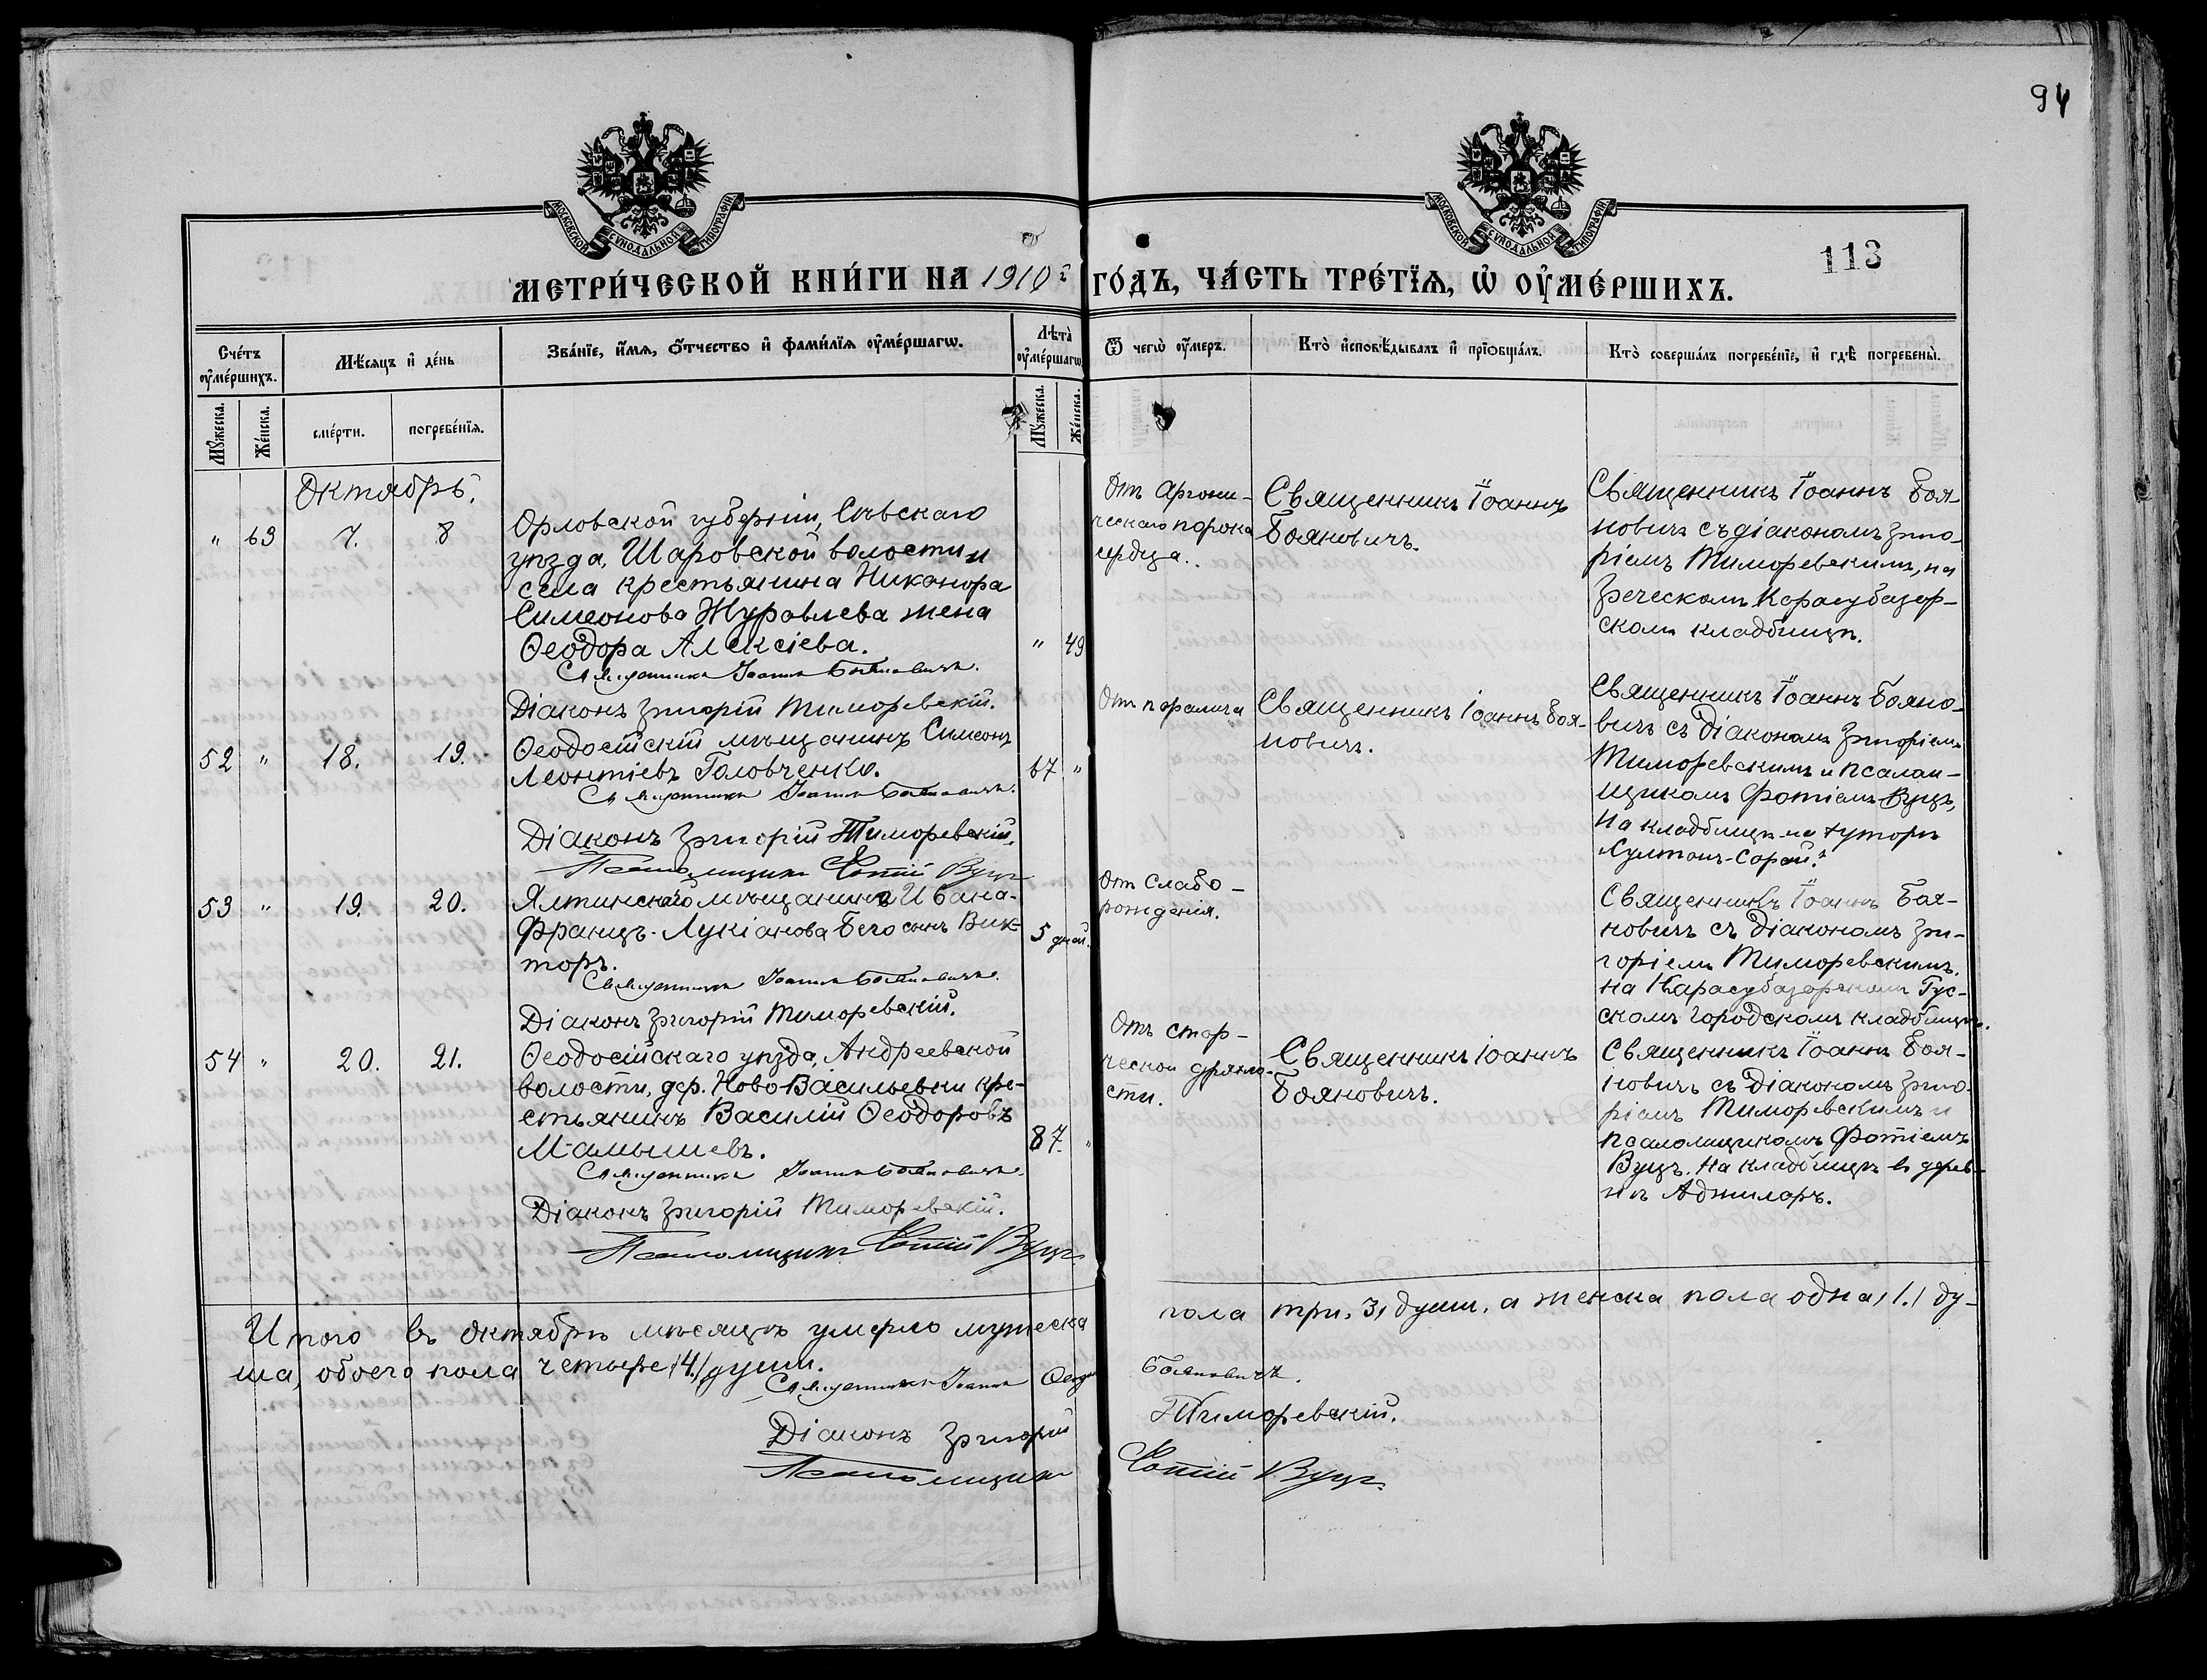 94
МОСКОВСКОЙ СѴНОДАЛЬНОЙ ТИПОГРАФІИ
МОСКОВСКОЙ СѴНОДАЛЬНОЙ ТИПОГРАФІИ
113
МЕТРИ́ЧЕСКОЙ КНИ́ГИ НА 1910й ГО́ДЪ, ЧА́СТЬ ТРЕ́ТЇѦ, Ѡ҆ ОУ҆МЕ́РШИХЪ.
Сче́тъ оу҆ме́ршихъ.
Мѣ́сяцъ и҆ де́нь
Зва́нїе, и҆́мѧ, ѻ҆́тчество и҆ фами́лїѧ оу҆ме́ршагѡ.
Лѣта̀ оу҆ме́ршагѡ
Ѿ чегѡ̀ оу҆́меръ.
Кто̀ и҆сповѣ́дывалъ и҆ прїѡбща́лъ.
Кто̀ соверша́лъ погребе́нїе, и҆ гдѣ̀ погребены̀.
Мꙋ́жеска.
Же́нска.
сме́рти.
погребе́нїѧ.
Мꙋ́жеска.
Же́нска.
Октябрь.
" 63 7. 8
Орловской губерніи, Сѣвскаго
уѣзда, Шаровской волости и
села крестьянина Никанора
Симеонова Журавлева жена
Ѳеодора Алексіева.
" 49
Священникъ Іоаннъ Бояновичъ.
Діаконъ Григорій Тиморевскій.
Отъ аргони-
ческаго порока
сердца..
Священникъ Іоаннъ
Бояновичъ.
Священникъ Іоаннъ Боя-
новичъ съ діакономъ Григо-
ріемъ Тиморевскимъ, на
Греческомъ Карасубазар-
скомъ кладбищѣ.
52 " 18. 19.
Ѳеодосійскій мѣщанинъ Симеонъ
Леонтіевъ Головченко.
67 "
Священникъ Іоаннъ Бояновичъ.
Діаконъ Григорій Тиморевскій.
Псаломщикъ Фотій Вуцъ
Отъ паралича
Священникъ Іоаннъ Боя-
новичъ.
Священникъ Іоаннъ Бояно-
вичъ съ Діакономъ Григоріемъ
Тиморевскимъ и псалом-
щикомъ Фотіемъ Вуцъ,
на кладбищѣ на хуторѣ
Султанъ-Сарай.
53 " 19. 20.
Ялтинскаго мѣщанина Ивана-
Францъ-Лукіанова Бего сынъ Вик-
торъ.
5 дней.
Священникъ Іоаннъ Бояновичъ.
Діаконъ Григорій Тиморевскій.
Отъ слабо-
рожденія.
Священникъ Іоаннъ Боя-
новичъ съ Діакономъ Гри-
горіемъ Тиморевскимъ.
на Карасубазарскомъ Рус-
скомъ Городскомъ кладбищѣ.
54 " 20. 21.
Ѳеодосійскаго уѣзда, Андреевской
волости, дер. Ново-Васильевки кре-
стьянинъ Василій Ѳеодоровъ
Мамышевъ.
87. "
Священникъ Іоаннъ Бояновичъ.
Діаконъ Григорій Тиморевскій.
Псаломщикъ Фотій Вуцъ
Отъ стар-
ческой дряхло-
сти.
Священникъ Іоаннъ
Бояновичъ.
Священникъ Іоаннъ Боя-
новичъ съ Діакономъ Григо-
ріемъ Тиморевскимъ и
псаломщикомъ Фотіемъ
Вуцъ. на кладбищѣ въ дерев-
нѣ Аджиларъ.
Итого въ октябрѣ мѣсяцѣ умерло мужеска пола три, 3, души, а женска пола одна, 1.1 ду-
ша, обоего пола четыре /4./ души.
Священникъ Іоаннъ Бояновичъ.
Діаконъ Григорій Тиморевскій.
Псаломщикъ Фотій Вуцъ